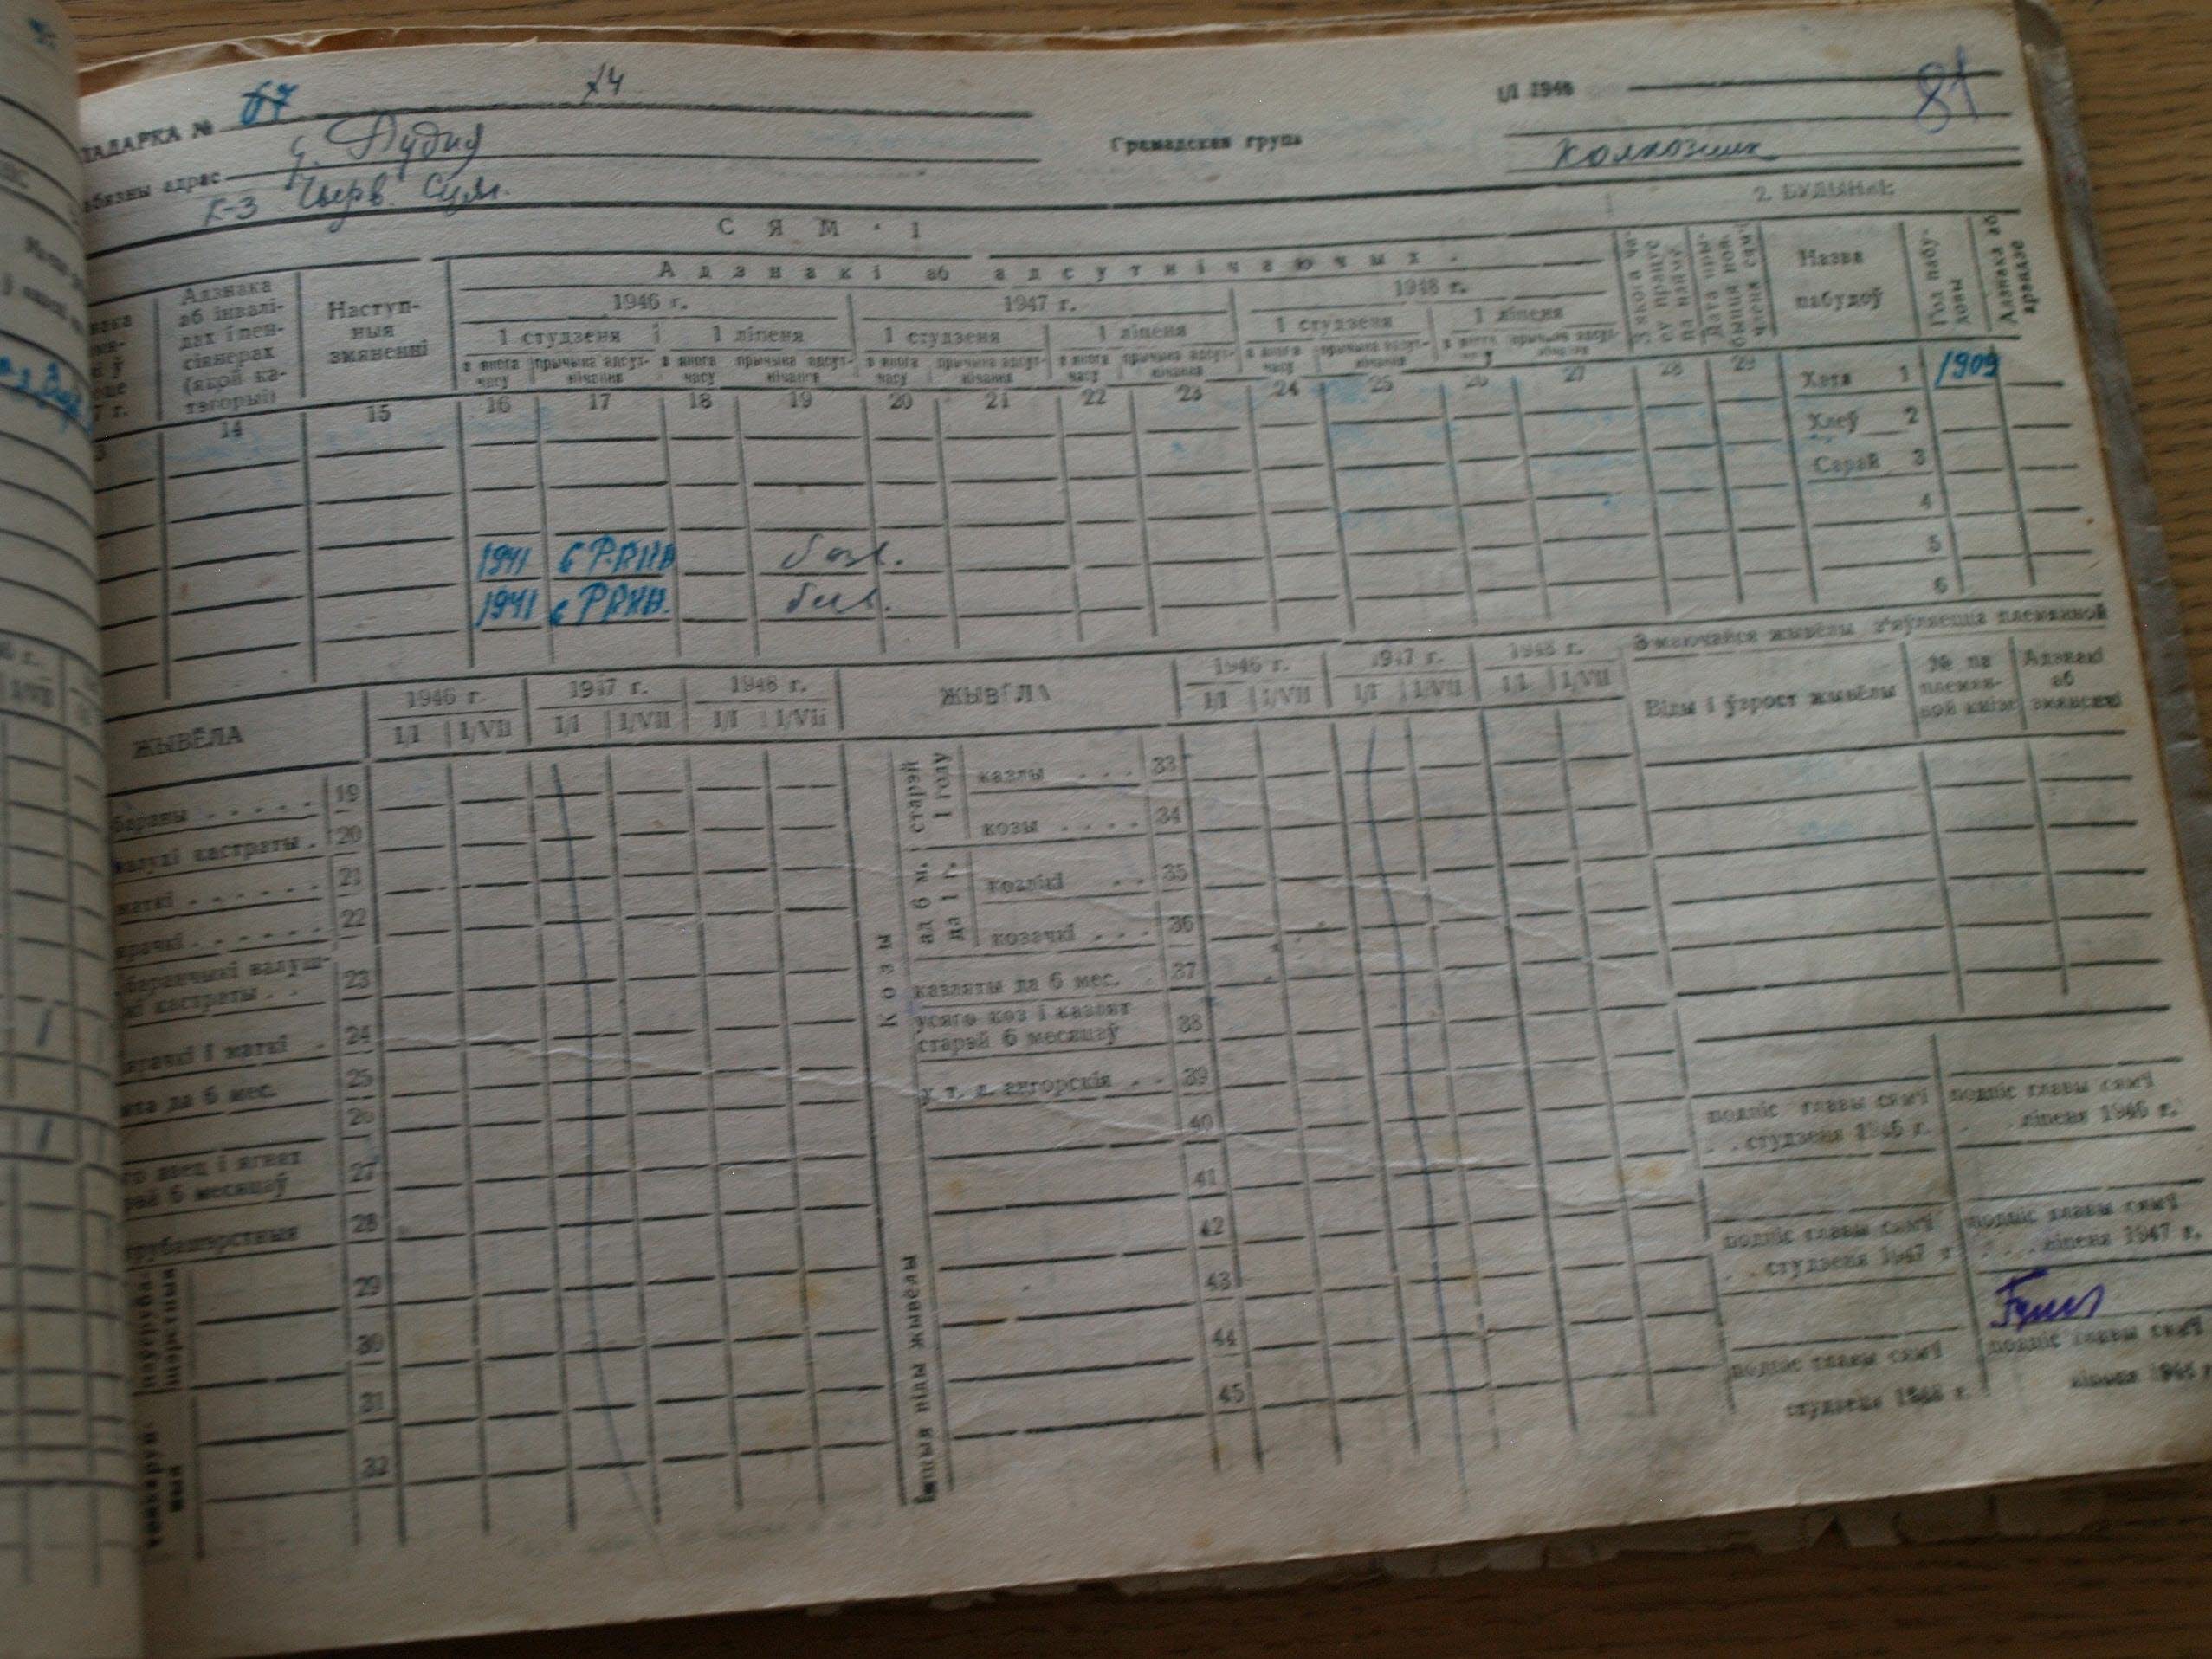 ГАДАРКА № 67 14 1/I 1946 81
Грамадская група колхозник
адрас
К-з Черв.
СЯМ'І
2. БУДЫНКІ
Адзнака аб інвалідах і пенсіянерах (якой катэгорыі)
Наступныя змяненні
Адзнакі аб адсутнічаючых
1946 г. 1947 г. 1948 г.
1 студзеня 1 ліпеня 1 студзеня 1 ліпеня 1 студзеня 1 ліпеня
з якога часу прычына адсутнічання з якога часу прычына адсутнічання з якога часу прычына адсутнічання з якога часу прычына адсутнічання з якога часу прычына адсутнічання
Назва пабудоў
Год пабудовы
14 15 16 17 18 19 20 21 22 23 24 25 26 27 28 29
Хата 1 1909
Хлеў 2
Сарай 3
4
5
6
1941 в РККА
1941 в РККА.
ЖЫВЁЛА 1946 г. 1947 г. 1948 г. ЖЫВЁЛА 1946 г. 1947 г. 1948 г.
I/I I/VII I/I I/VII I/I I/VII I/I I/VII I/I I/VII I/I I/VII
З маючайся жывёлы з'яўляецца племянной
Віды і ўзрост жывёлы
№ па племянной кнізе
Адзнакі аб змяненні
бараны 19
кастраты 20
маткі 21
22
баранчыкі валушкі кастраты 23
і маткі 24
да 6 мес. 25
26
авец і ягнят
6 месяцаў 27
грубашэрстныя 28
29
30
31
32
Козы
старэй 1 году
казлы 33
козы 34
ад 6 м. да 1 г.
козлікі 35
козачкі 36
казляты да 6 мес. 37
усяго коз і казлят
старэй 6 месяцаў 38
у т. л. ангорскія 39
40
Іншыя віды жывёлы
41
42
43
44
45
подпіс главы сям'і
студзеня 1946 г.
подпіс главы сям'і
ліпеня 1946 г.
подпіс главы сям'і
студзеня 1947 г.
подпіс главы сям'і
ліпеня 1947 г.
подпіс главы сям'і
студзеня 1948 г.
подпіс главы сям'і
ліпеня 1948 г.